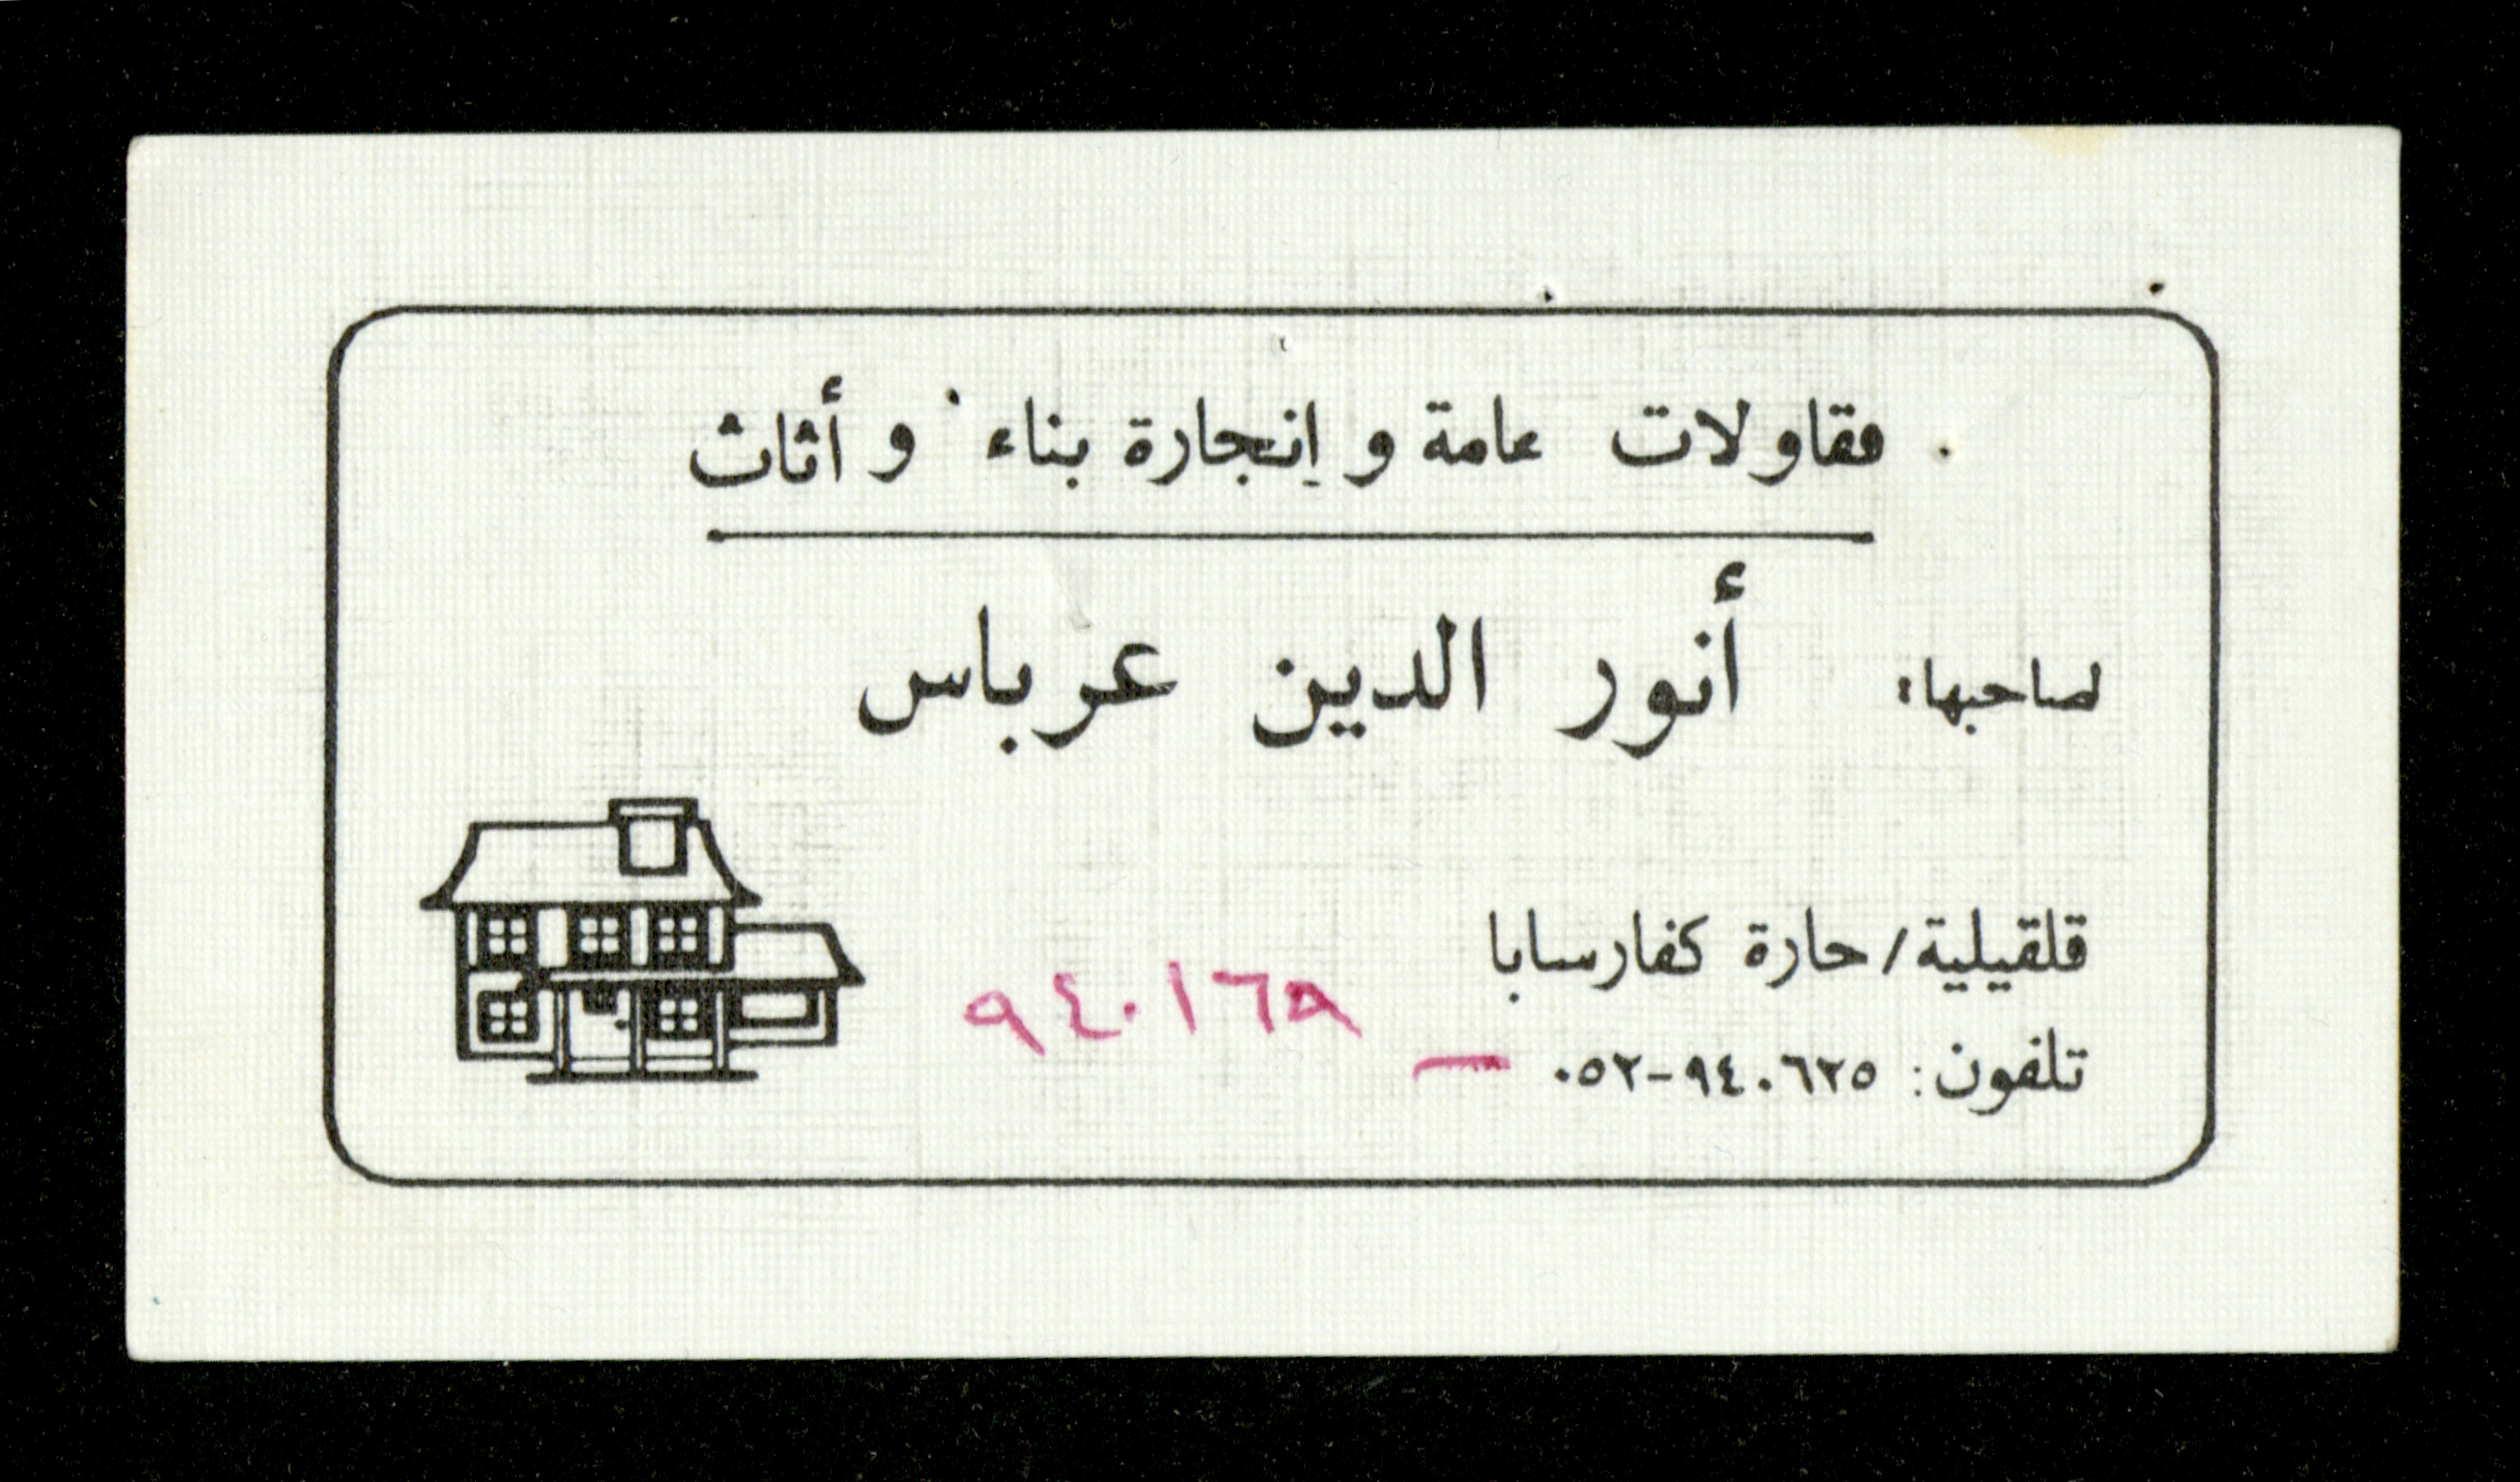 مقاولات عامة و إنجارة بناء و أثاث
لصاحبها: أنور الدين عرباس
قلقيلية/حارة كفارسابا
تلفون: ٠٥٢-٩٤٠٦٢٥ —
٩٤٠١٦٩